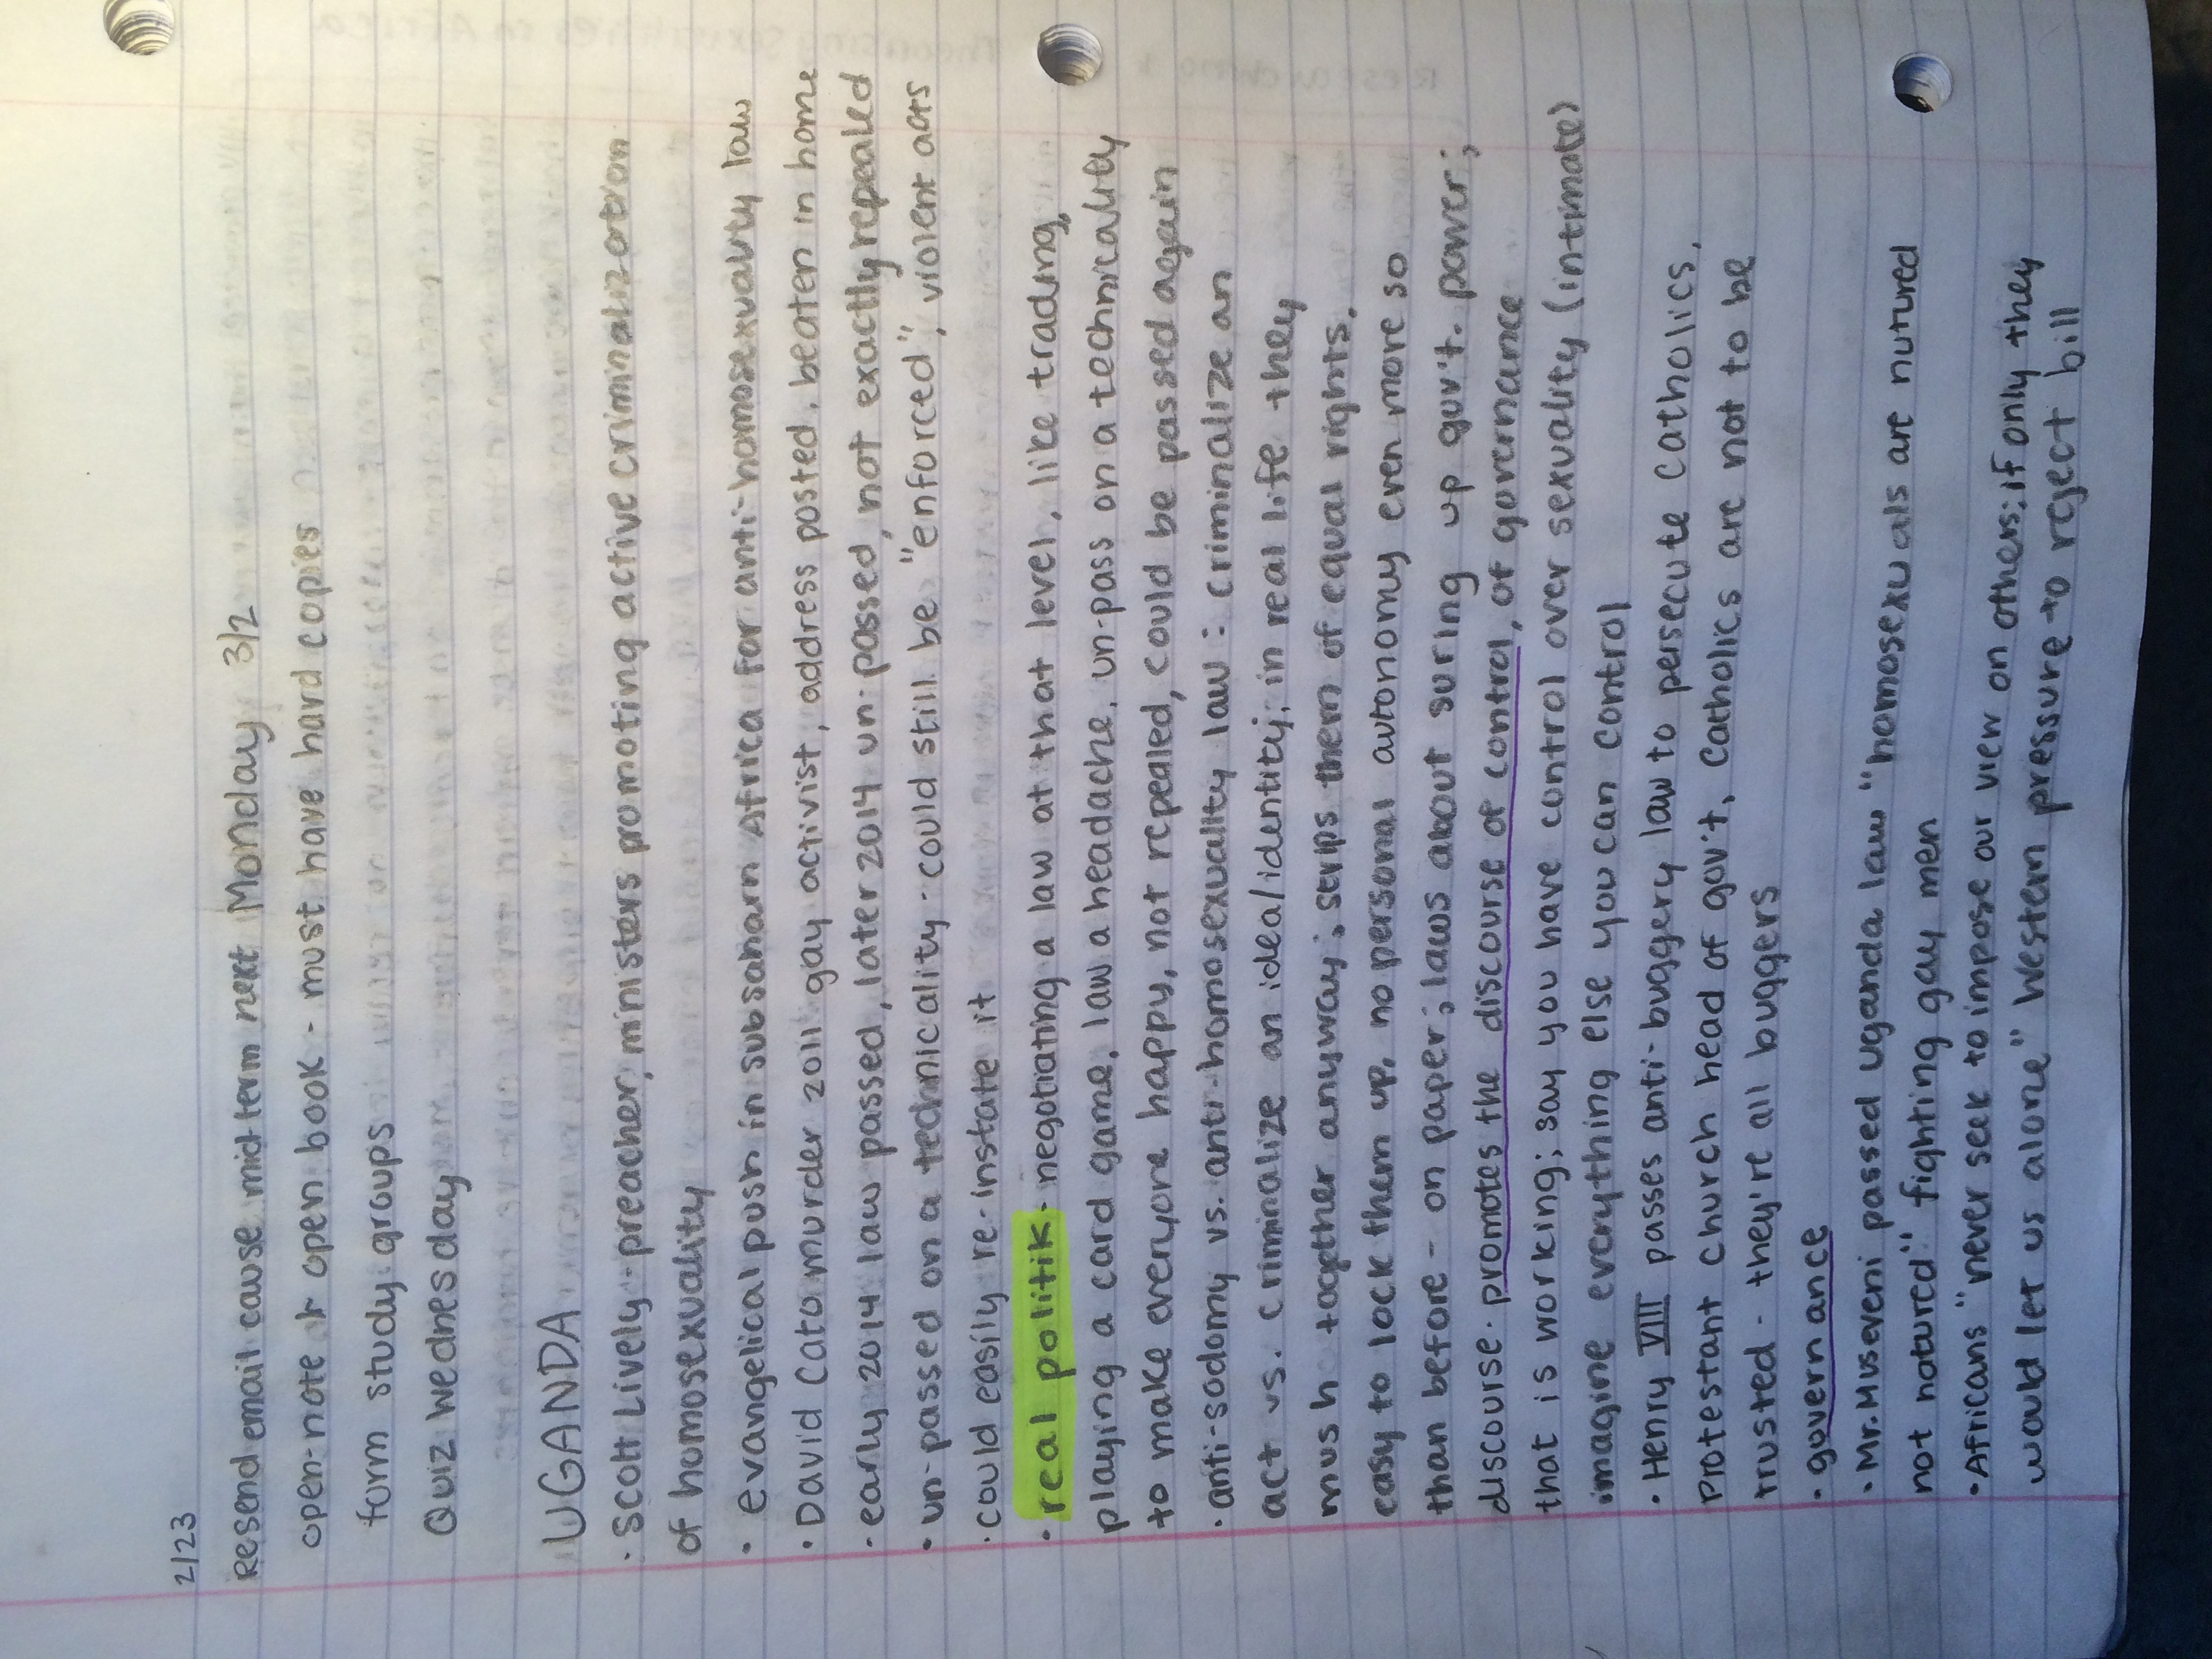 2/23
Resend email cause mid term next Monday 3/2
open-note & open book - must have hard copies
form study groups
Quiz Wednesday
UGANDA
· Scott Lively - preacher, ministers promoting active criminalization
of homosexuality
· evangelical push in subsaharn Africa for anti-homosexuality law
· David Cato murder 2011 gay activist, address posted, beaten in home
· early 2014 law passed, later 2014 un-passed, not exactly repealed
· un-passed on a technicality - could still be "enforced", violent acts
· could easily re-instate it
· real politik - negotiating a law at that level, like trading,
playing a card game, law a headache, un-pass on a technicality
to make everyone happy, not repealed, could be passed again
· anti-sodomy vs. anti-homosexuality law : criminalize an
act vs. criminalize an idea/identity; in real life they
mush together anyway; strips them of equal rights,
easy to lock them up, no personal autonomy even more so
than before - on paper; laws about suring up gov't. power;
discourse. promotes the discourse of control, of governance
that is working; say you have control over sexuality (intimate)
imagine everything else you can control
· Henry VIII passes anti-buggery law to persecute catholics,
Protestant church head of gov't, Catholics are not to be
trusted - they're all buggers
· governance
· Mr. Museveni passed uganda law "homosexuals are nutured
not natured" fighting gay men
· Africans "never seek to impose our view on others; if only they
would let us alone" Western pressure to reject bill